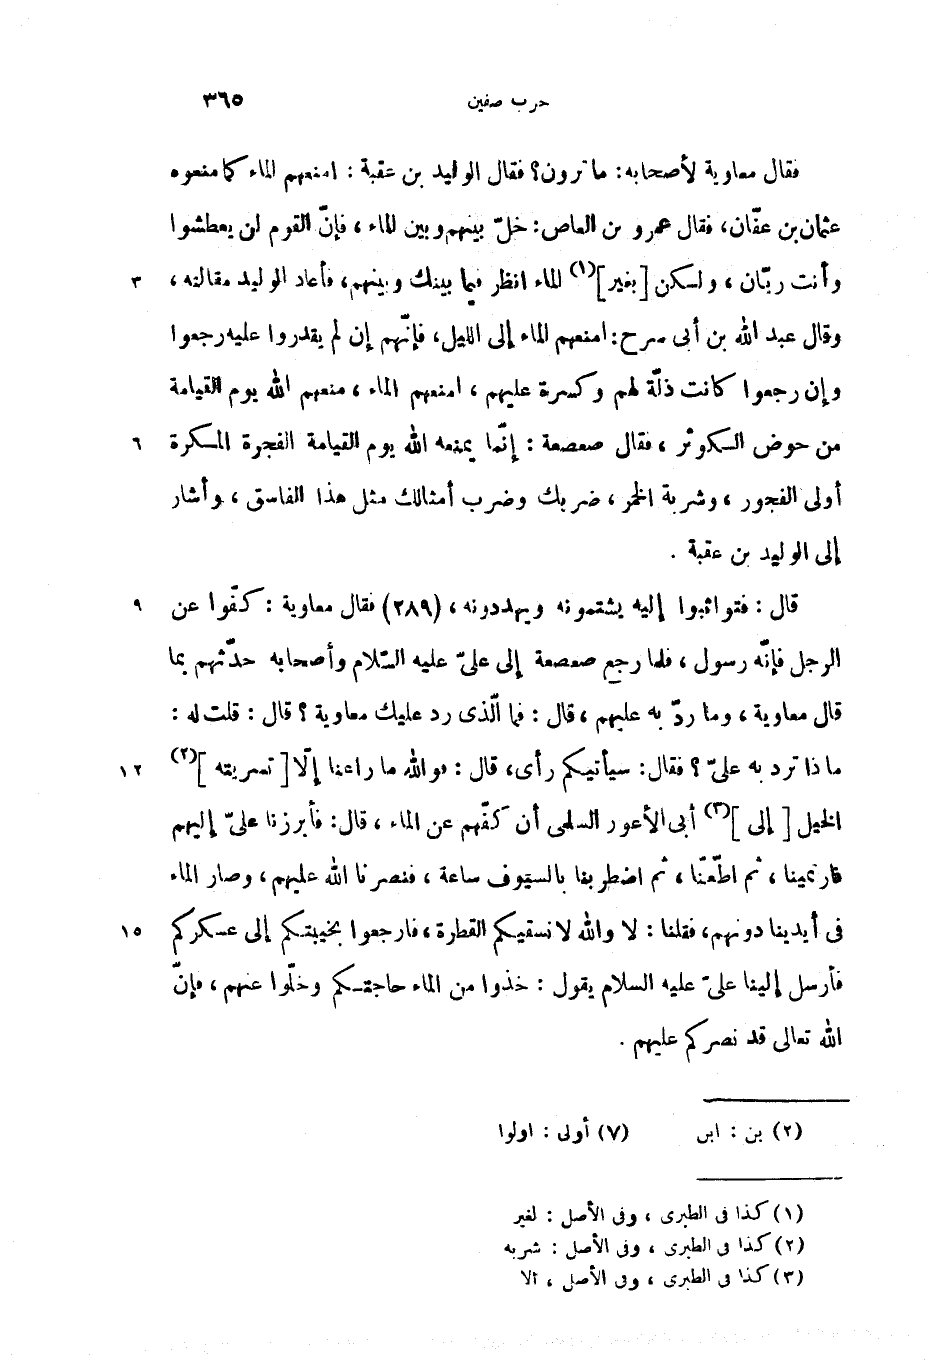 حرب صفين ٣٦٥
فقال معاوية لأصحابه: ما ترون؟ فقال الوليد بن عقبة : امنعهم الماء كما منعوه
عثمان بن عفّان، فقال عمرو بن العاص: خلّ بينهم وبين الماء ، فإنّ القوم لن يعطشوا
وأنت ريّان ، ولكن [بغير](١) الماء انظر فيما بينك وبينهم، فأعاد الوليد مقالته ، ٣
وقال عبد الله بن أبى سرح: امنعهم الماء إلى الليل، فإنّهم إن لم يقدروا عليه رجعوا
وإن رجعوا كانت ذلّة لهم وكسرة عليهم ، امنعهم الماء ، منعهم الله يوم القيامة
من حوض الكوثر ، فقال صعصعة : إنّما يمنعه الله يوم القيامة الفجرة المسكرة ٦
أولى الفجور ، وشربة الخمر ، ضربك وضرب أمثالك مثل هذا الفاسق ، وأشار
إلى الوليد بن عقبة .
قال : فتواثبوا إليه يشتمونه ويهددونه ، (٢٨٩) فقال معاوية : كفّوا عن ٩
الرجل فإنّه رسول ، فلما رجع صعصعة إلى علىّ عليه السّلام وأصحابه حدّثهم بما
قال معاوية ، وما ردّ به عليهم ، قال : فما الّذى رد عليك معاوية ؟ قال : قلت له :
ماذا ترد به علىّ ؟ فقال: سيأتيكم رأى، قال : فوالله ما راعنا إلّا [ تسريته ](٢) ١٢
الخيل [ إلى ](٣) أبى الأعور السلمى أن كفّهم عن الماء ، قال: فأبرزنا علىّ إليهم
فارتمينا ، ثم اطّعنّا ، ثم اضطربنا بالسيوف ساعة ، فنصرنا الله عليهم ، وصار الماء
فى أيدينا دونهم، فقلنا : لا والله لا نسقيكم القطرة ، فارجعوا بخيبتكم إلى عسكركم ١٥
فأرسل إلينا علىّ عليه السلام يقول : خذوا من الماء حاجتكم وخلّوا عنهم ، فإنّ
الله تعالى قد نصركم عليهم .
(٢) بن : ابن (٧) أولى : اولوا
(١) كذا فى الطبرى ، وفى الأصل : لغير
(٢) كذا فى الطبرى ، وفى الأصل : شربه
(٣) كذا فى الطبرى ، وفى الأصل ، الا